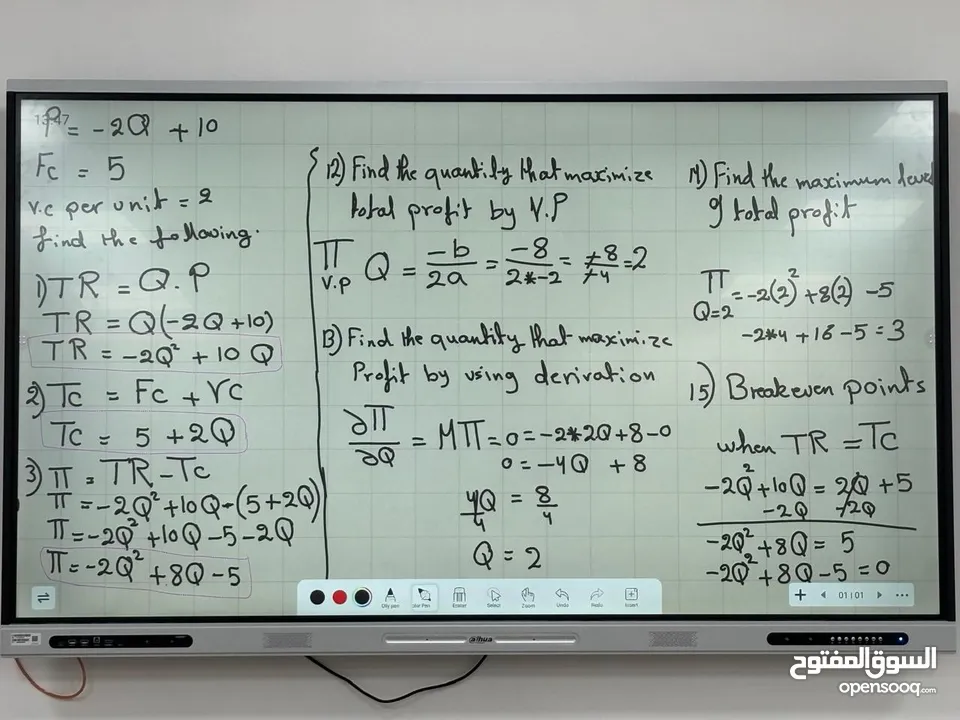 13:47
P = -2Q + 10
Fc = 5
v.c per unit = 2
find the following.
1) TR = Q.P
TR = Q(-2Q+10)
TR = -2Q² + 10 Q
2) Tc = Fc + VC
Tc = 5 + 2Q
3) π = TR - Tc
π = -2Q² + 10Q - (5+2Q)
π = -2Q² + 10Q - 5 - 2Q
π = -2Q² + 8Q - 5
12) Find the quantity that maximize
total profit by V.P
π V.P Q = -b/2a = -8/2*-2 = -8/-4 = 2
13) Find the quantity that maximize
Profit by using derivation
∂π/∂Q = Mπ = 0 = -2*2Q + 8 - 0
0 = -4Q + 8
4Q/4 = 8/4
Q = 2
14) Find the maximum level
of total profit
π Q=2 = -2(2)² + 8(2) - 5
-2*4 + 16 - 5 = 3
15) Breakeven points
when TR = Tc
-2Q² + 10Q = 2Q + 5
-2Q -2Q
-2Q² + 8Q = 5
-2Q² + 8Q - 5 = 0
Select
Zoom
Undo
Redo
Insert
01 | 01
alhua
السوق المفتوح
opensooq.com